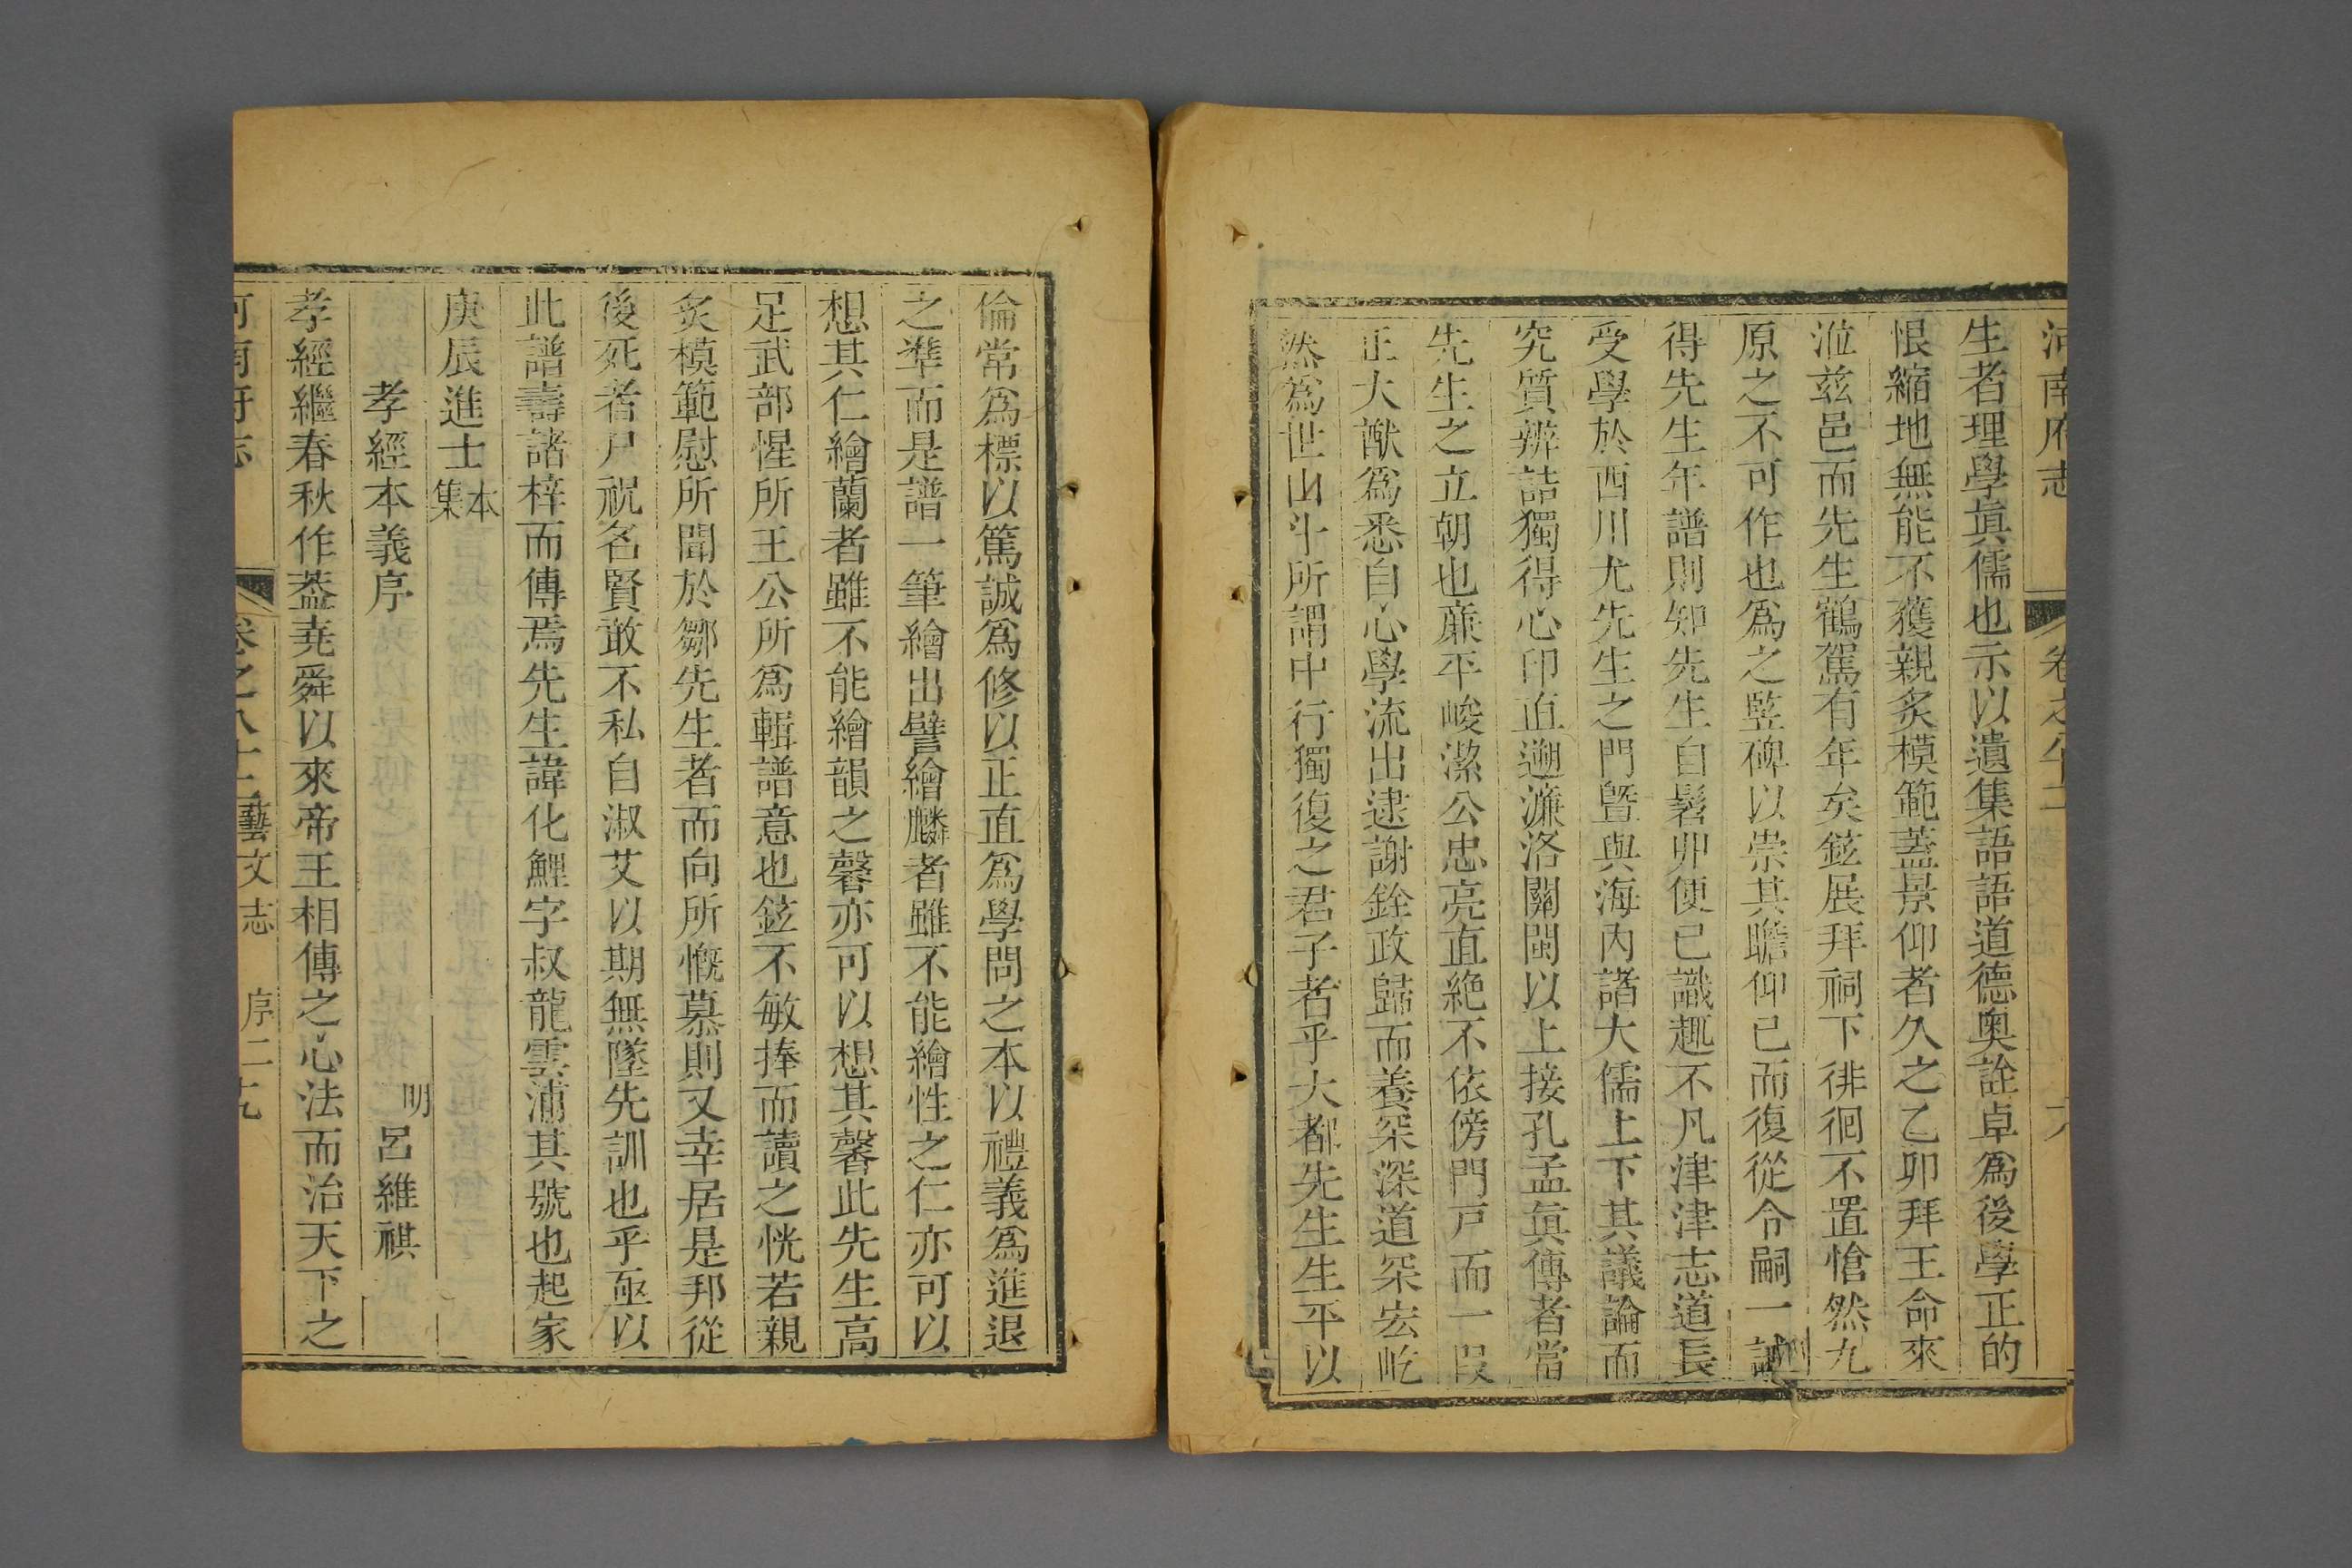 河南府志 卷之八十二 六
生者理學眞儒也示以遺集語語道德奥詮卓爲後學正的
恨縮地無能不獲親炙模範蓋景仰者久之乙卯拜王命來
涖兹邑而先生鶴駕有年矣鉉展拜祠下徘徊不置愴然九
原之不可作也爲之竪碑以崇其瞻仰已而復從令嗣一
得先生年譜則知先生自髫丱便已識趣不凡津津志道長
受學於西川尤先生之門曁與海内諸大儒上下其議論而
究質辨詰獨得心印直遡濂洛關閩以上接孔孟眞傳者當
先生之立朝也亷平峻潔公忠亮直絶不依傍門戸而一叚
正大猷爲悉自心學流出逮謝銓政歸而養罙深道罙宏屹
然爲世山斗所謂中行獨復之君子者乎大都先生生平以
倫常爲標以篤誠爲修以正直爲學問之本以禮義爲進退
之凖而是譜一筆繪出譬繪麟者雖不能繪性之仁亦可以
想其仁繪蘭者雖不能繪韻之馨亦可以想其馨此先生高
足武部惺所王公所爲輯譜意也鉉不敏捧而讀之恍若親
炙模範慰所聞於鄒先生者而向所慨慕則又幸居是邦從
後死者尸祝名賢敢不私自淑艾以期無墜先訓也乎亟以
此譜壽諸梓而傳焉先生諱化鯉字叔龍雲浦其號也起家
庚辰進士本集
孝經本義序 明呂維祺
孝經繼春秋作葢堯舜以來帝王相傳之心法而治天下之
河南府志 卷之八十二藝文志 序二